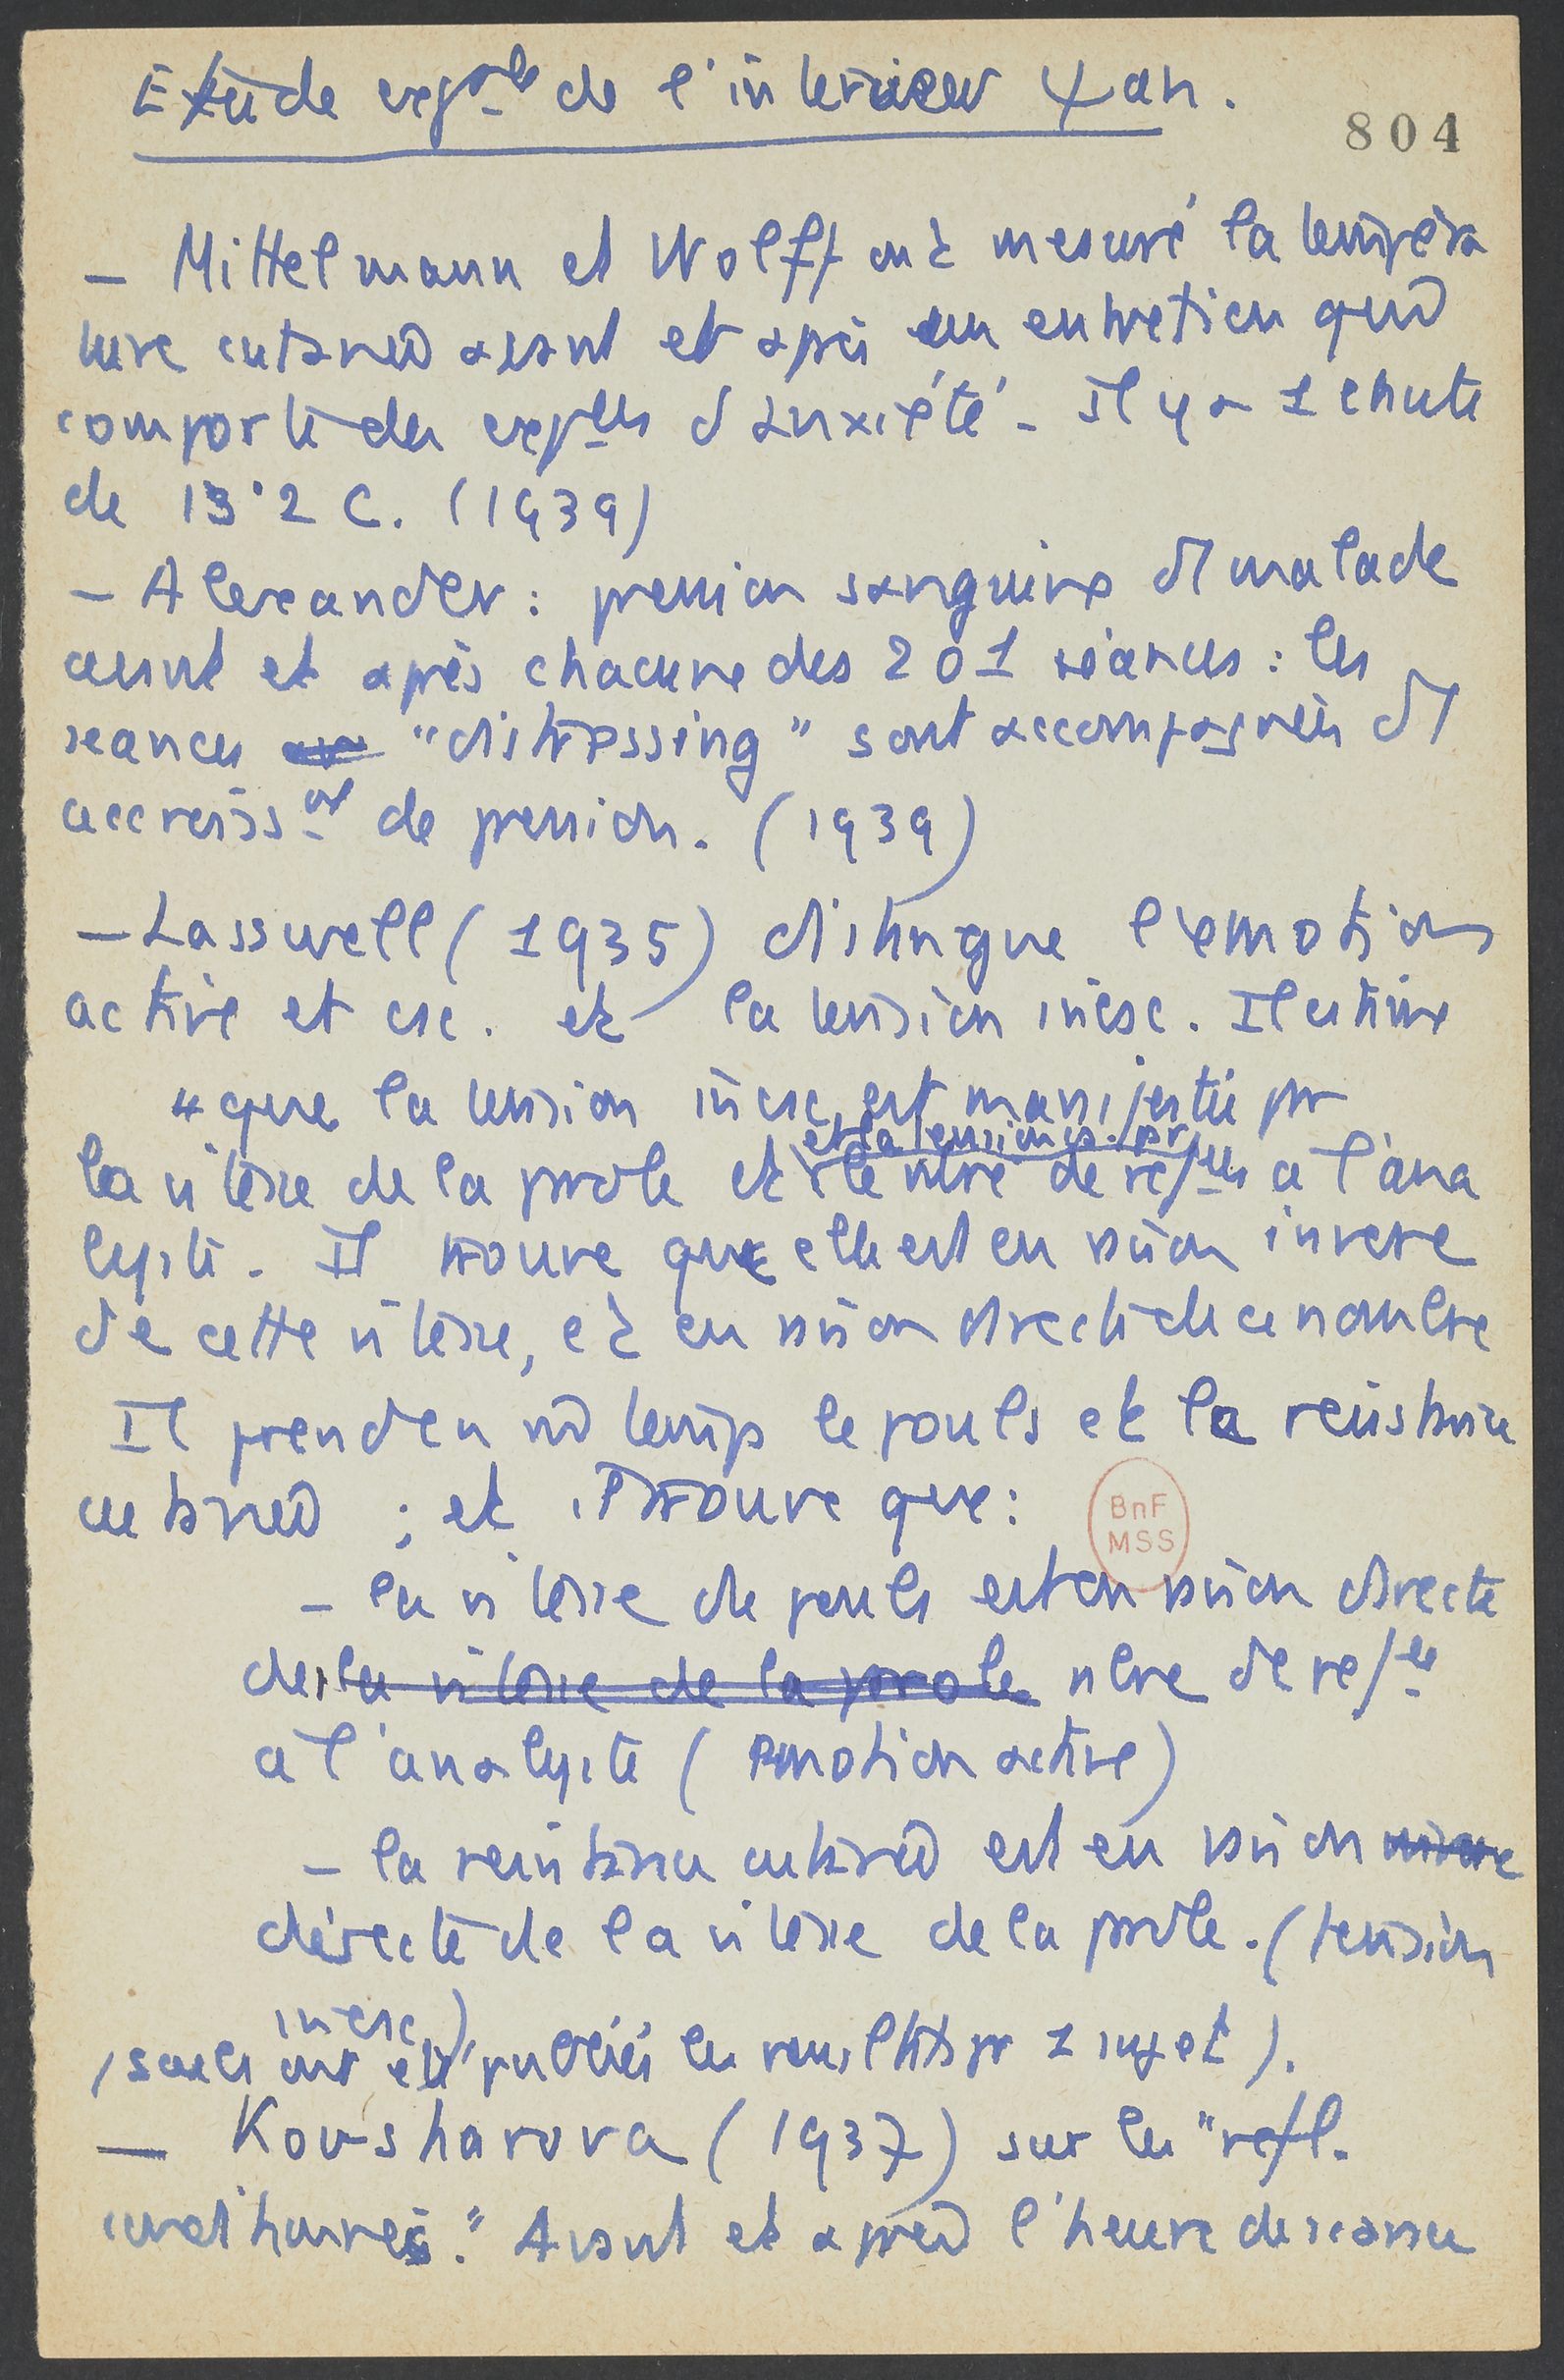 Etude exp^ale de l'interview ψan.
804
— Mittelmann et Wolff ont mesuré la tempéra
ture cutanée avant et après un entretien quand
comporte des exp^ces d'anxiété. Il y a 1 chute
de 13°2 C. (1939)
— Alexander : pression sanguine d'1 malade
avant et après chacune des 201 séances : les
séances "distressing" sont accompagnées d'1
accroiss^nt de pression. (1939)
— Lasswell (1935) distingue l'émotion
active et csc. et la tension incsc. Il estime
que la tension incsc. est manifestée par
et la tension csc. par
la vitesse de la parole et le nbre de ref^ces à l'ana
lyste. Il trouve que elle est en raison inverse
de cette vitesse, et en raison directe de ce nombre
Il prend en md temps le pouls et la résistance
cutanée ; et il trouve que :
BnF
MSS
— la vitesse du pouls est en raison directe
de la vitesse de la parole nbre de ref^ces
à l'analyste (émotion active)
— la résistance cutanée est en raison inverse
directe de la vitesse de la parole. (tension
incsc.)
(seuls ont été publiés les résultats pr 1 sujet).
— Kovsharova (1937) sur les "refl.
conditionnés." Avant et après l'heure de séance